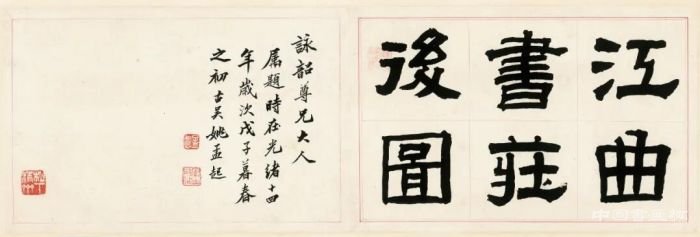 江曲
書莊
後圖
詠韶尊兄大人
屬題時在光緒十四
年歲次戊子暮春
之初古吳姚孟起